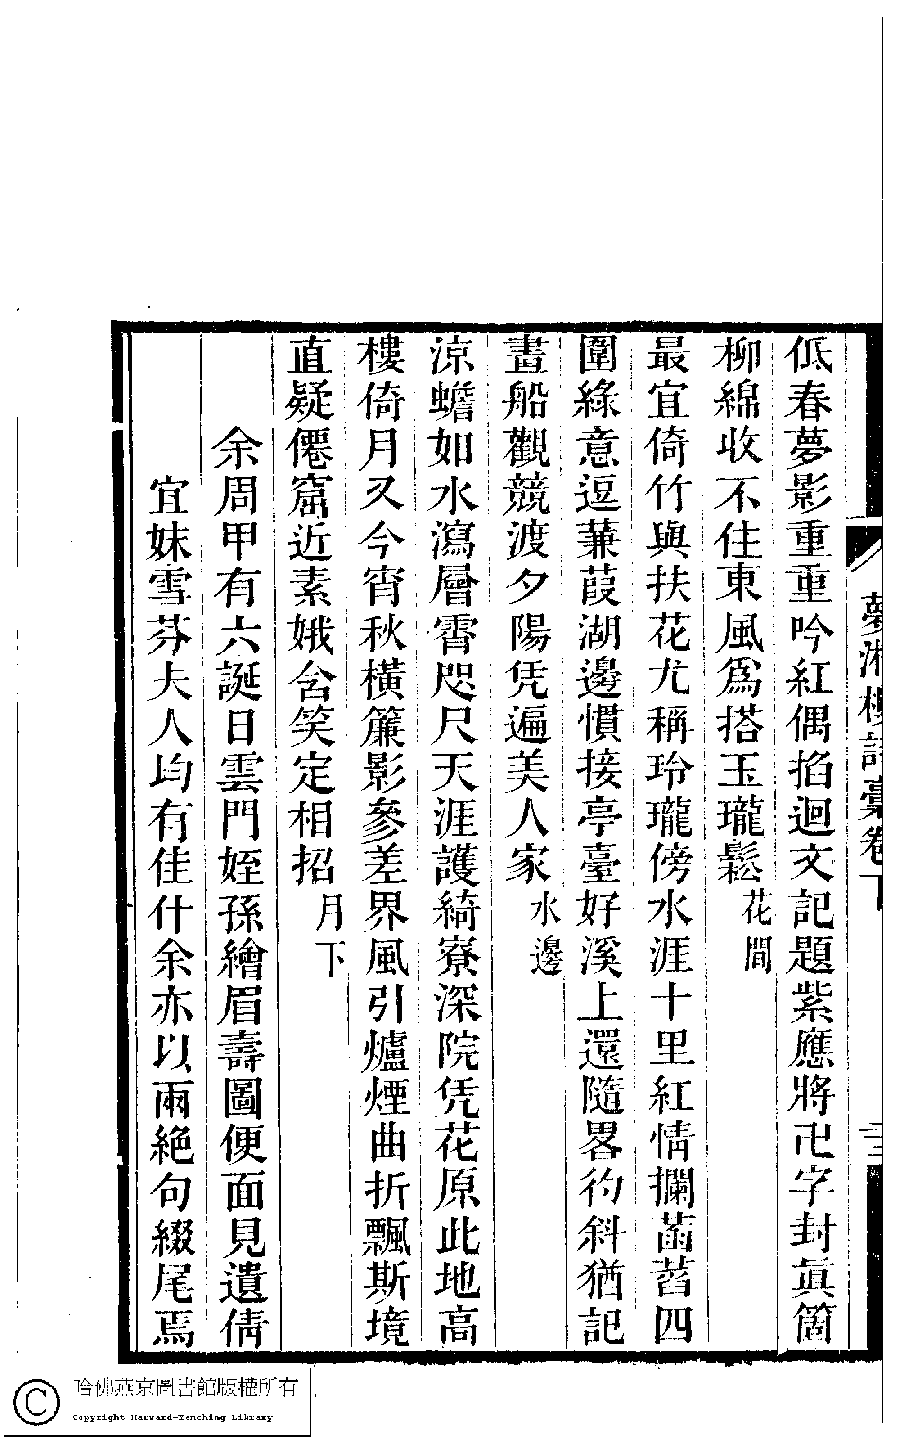 夢湘樓詩藁卷下
低春夢影重重吟紅偶掐迴文記題紫應將卍字封眞箇
柳綿收不住東風爲搭玉瓏鬆花間
最宜倚竹與扶花尤稱玲瓏傍水涯十里紅情攔菡萏四
圍綠意逗蒹葭湖邊慣接亭臺好溪上還隨畧彴斜猶記
畫船觀競渡夕陽凭遍美人家水邊
涼蟾如水瀉層霄咫尺天涯護綺寮深院凭花原此地高
樓倚月又今宵秋橫簾影參差界風引爐煙曲折飄斯境
直疑僊窟近素娥含笑定相招月下
余周甲有六誕日雲門姪孫繪眉壽圖便面見遺倩
宜妹雪芬夫人均有佳什余亦以兩絕句綴尾焉
哈佛燕京圖書館版權所有
Copyright Harvard-Yenching Library